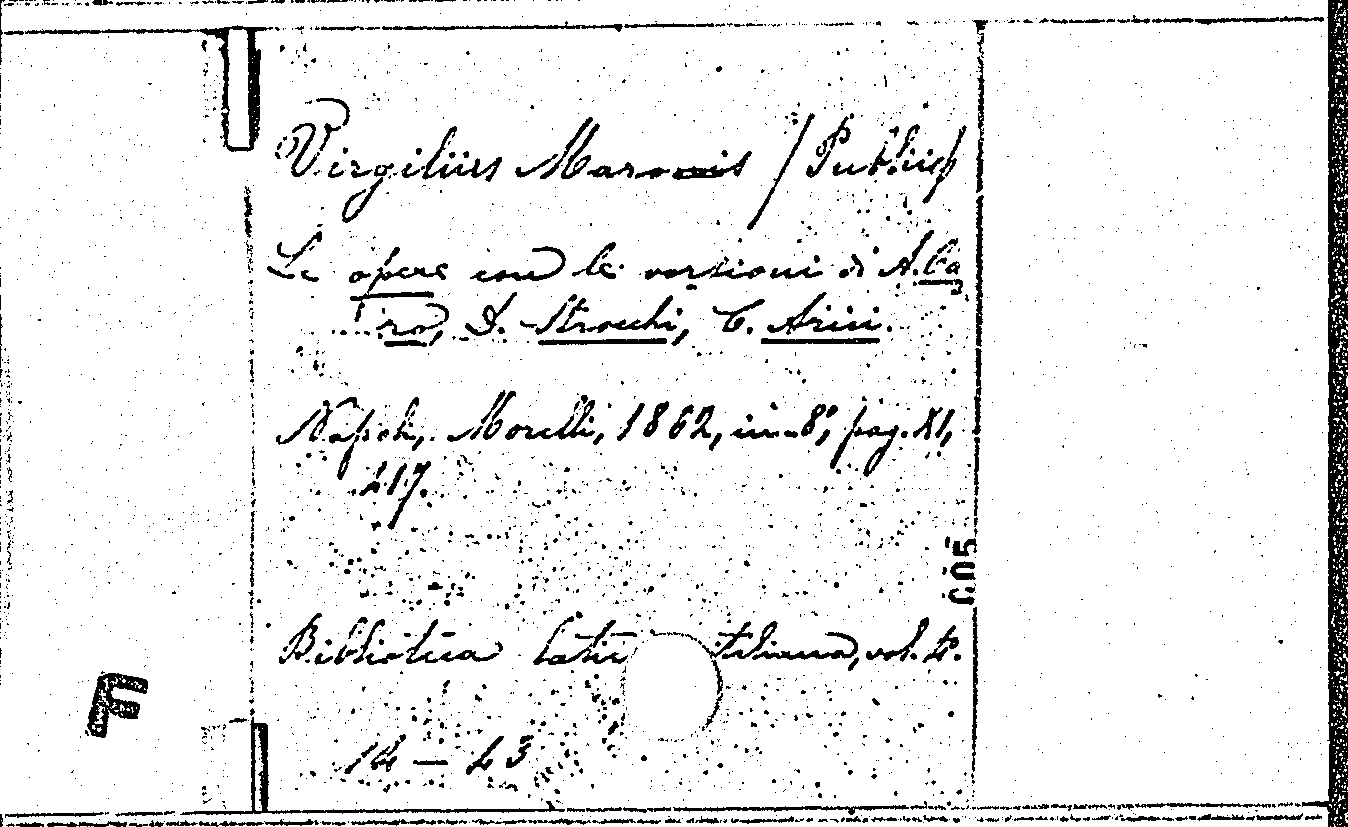 Virgilius Maronis / Publius
Le opere con le versioni di A. Ca
ro, D. Strocchi, C. Arici.
Napoli, Morelli, 1862, in-8°, pag. XI,
217.
C.05
Biblioteca Latin taliana, vol. 4°.
F
14 — 43